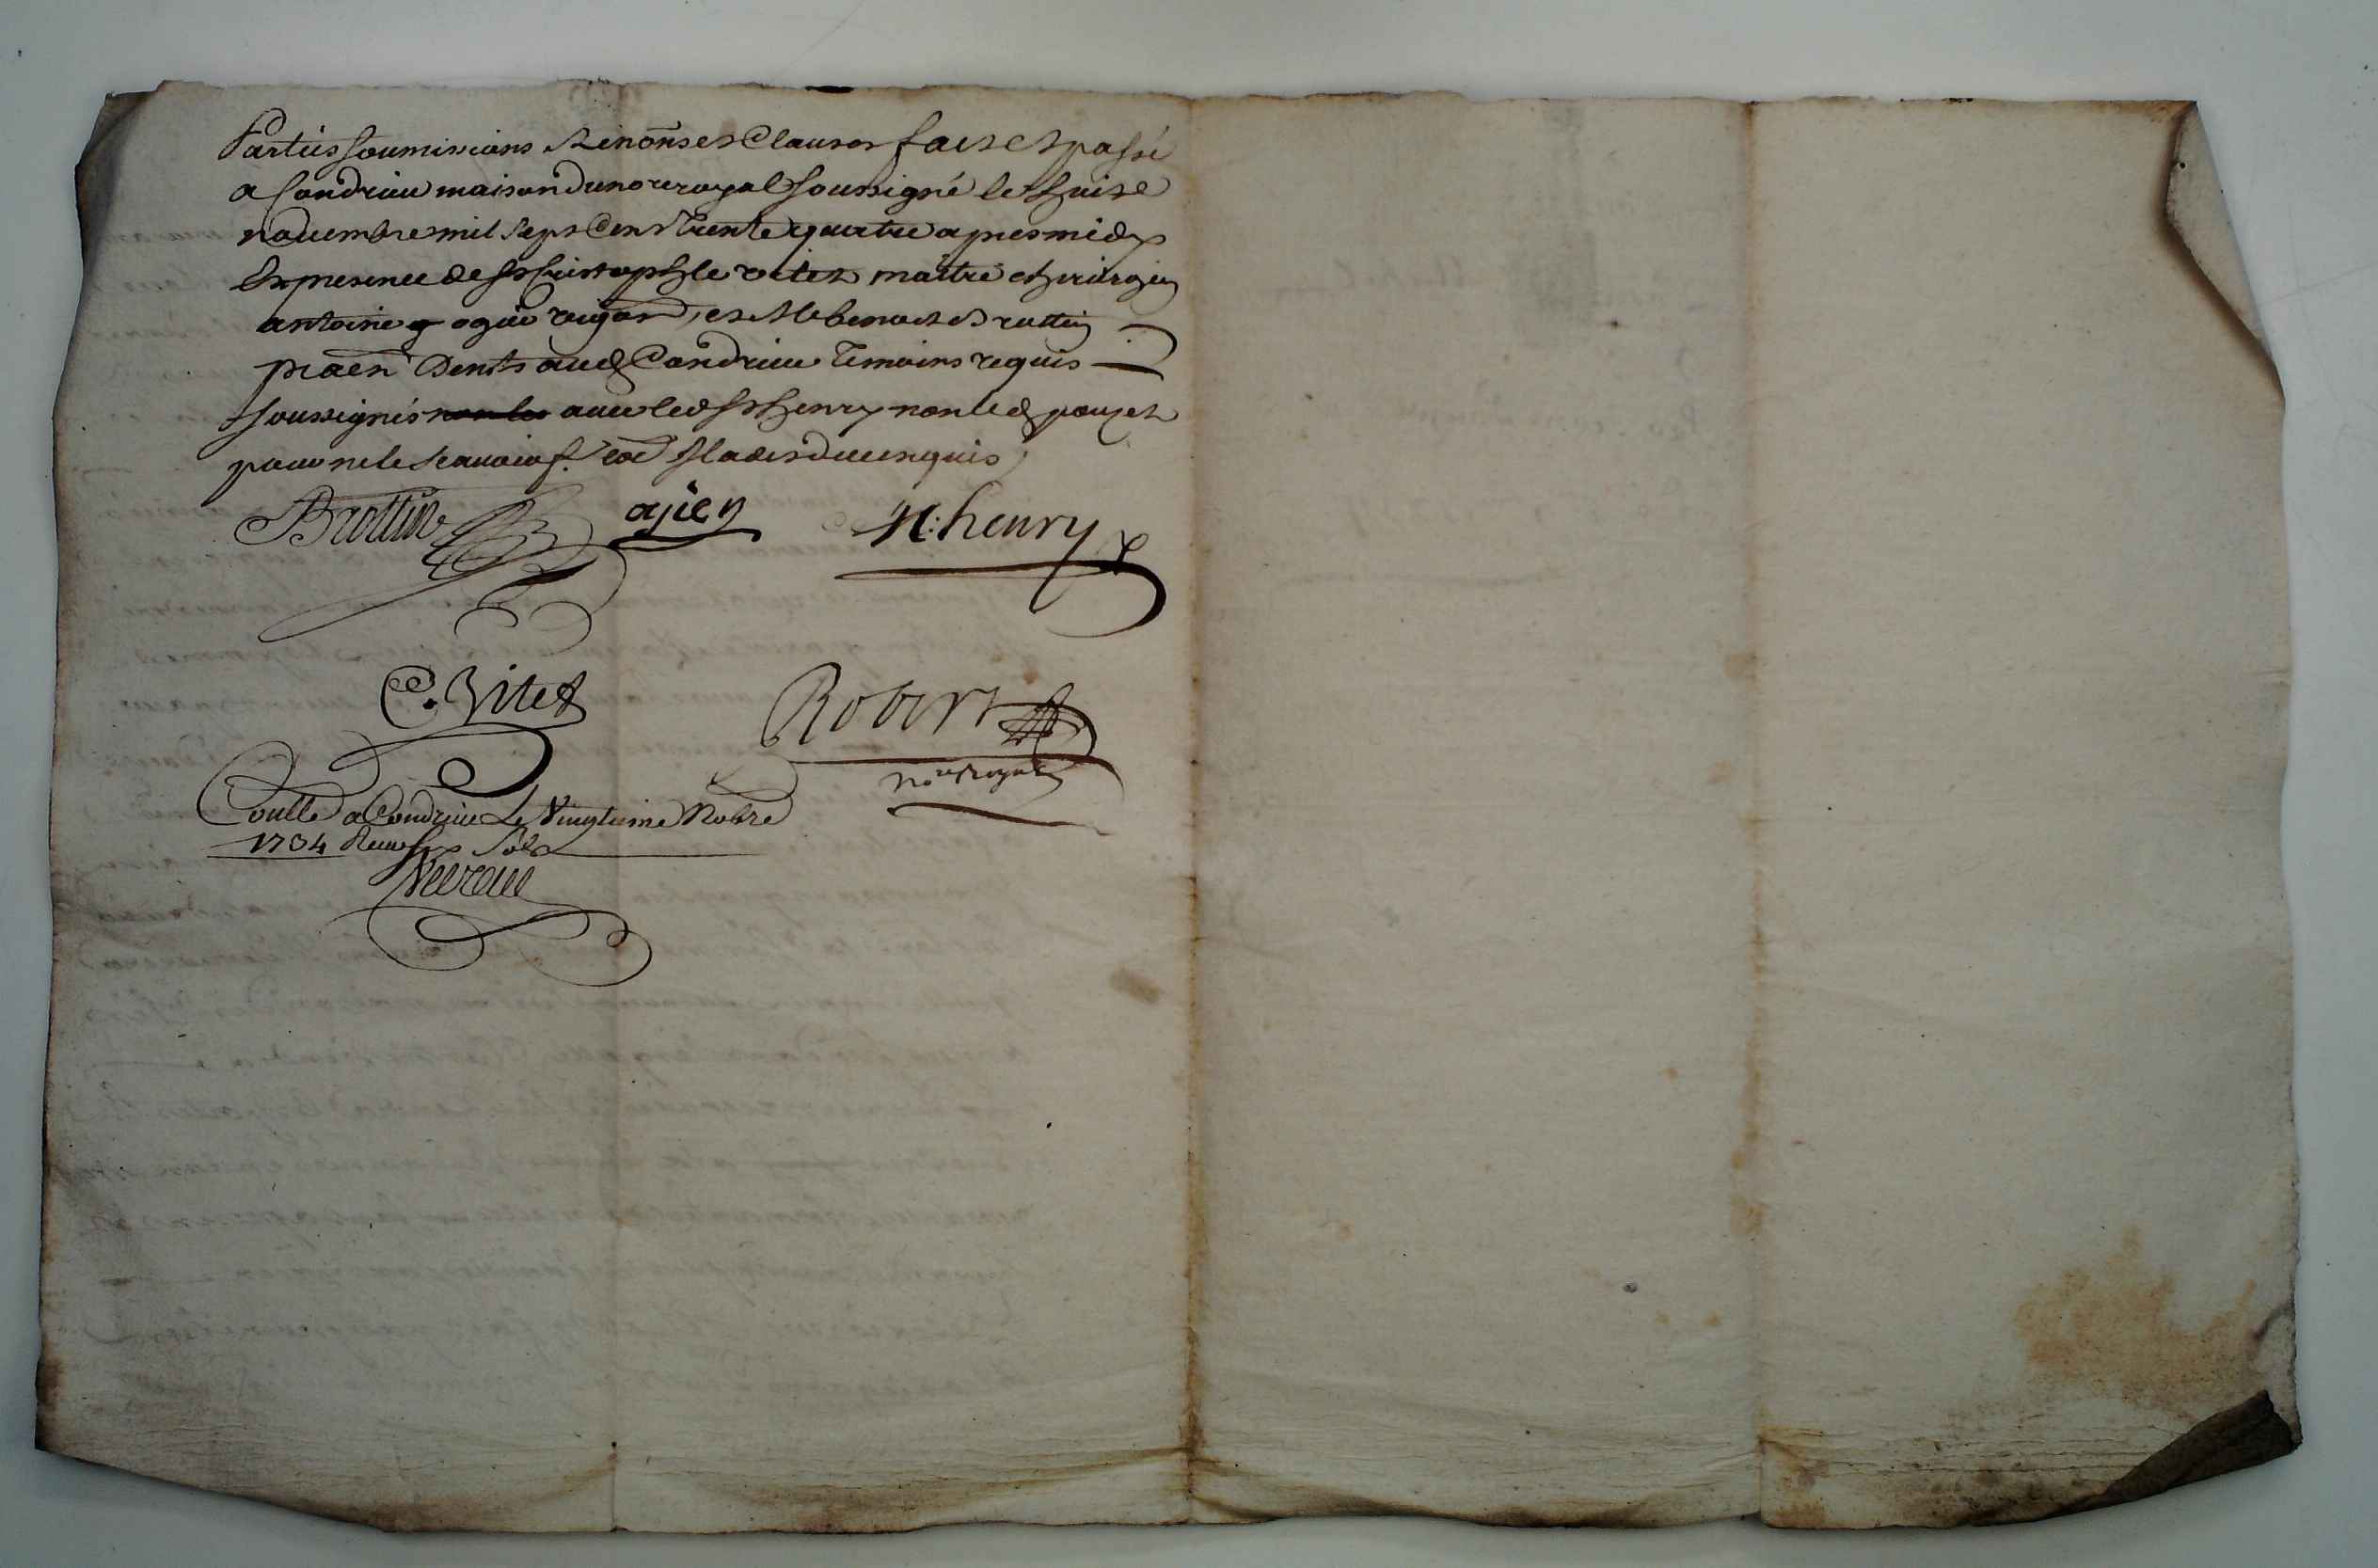 Parties soumissions Renonses Clauses fait et passé
a Condrieu maison du nore royal soussigné le huit
novembre mil sept cens trente quatre apres midy
En presence de sr Christophle vitet maitre chirurgien
antoine ogier et Me benoit Brottin
dud Condrieu Temoins requis
soussignés avec led sr henry non led pouzet
pour ne le scavoir de ce enquis
Brottin
N: henry
C. Vitet
Robert
nore royal
Conllé a Condrieu Le Vingtieme Nobre
1734 Receu six sols